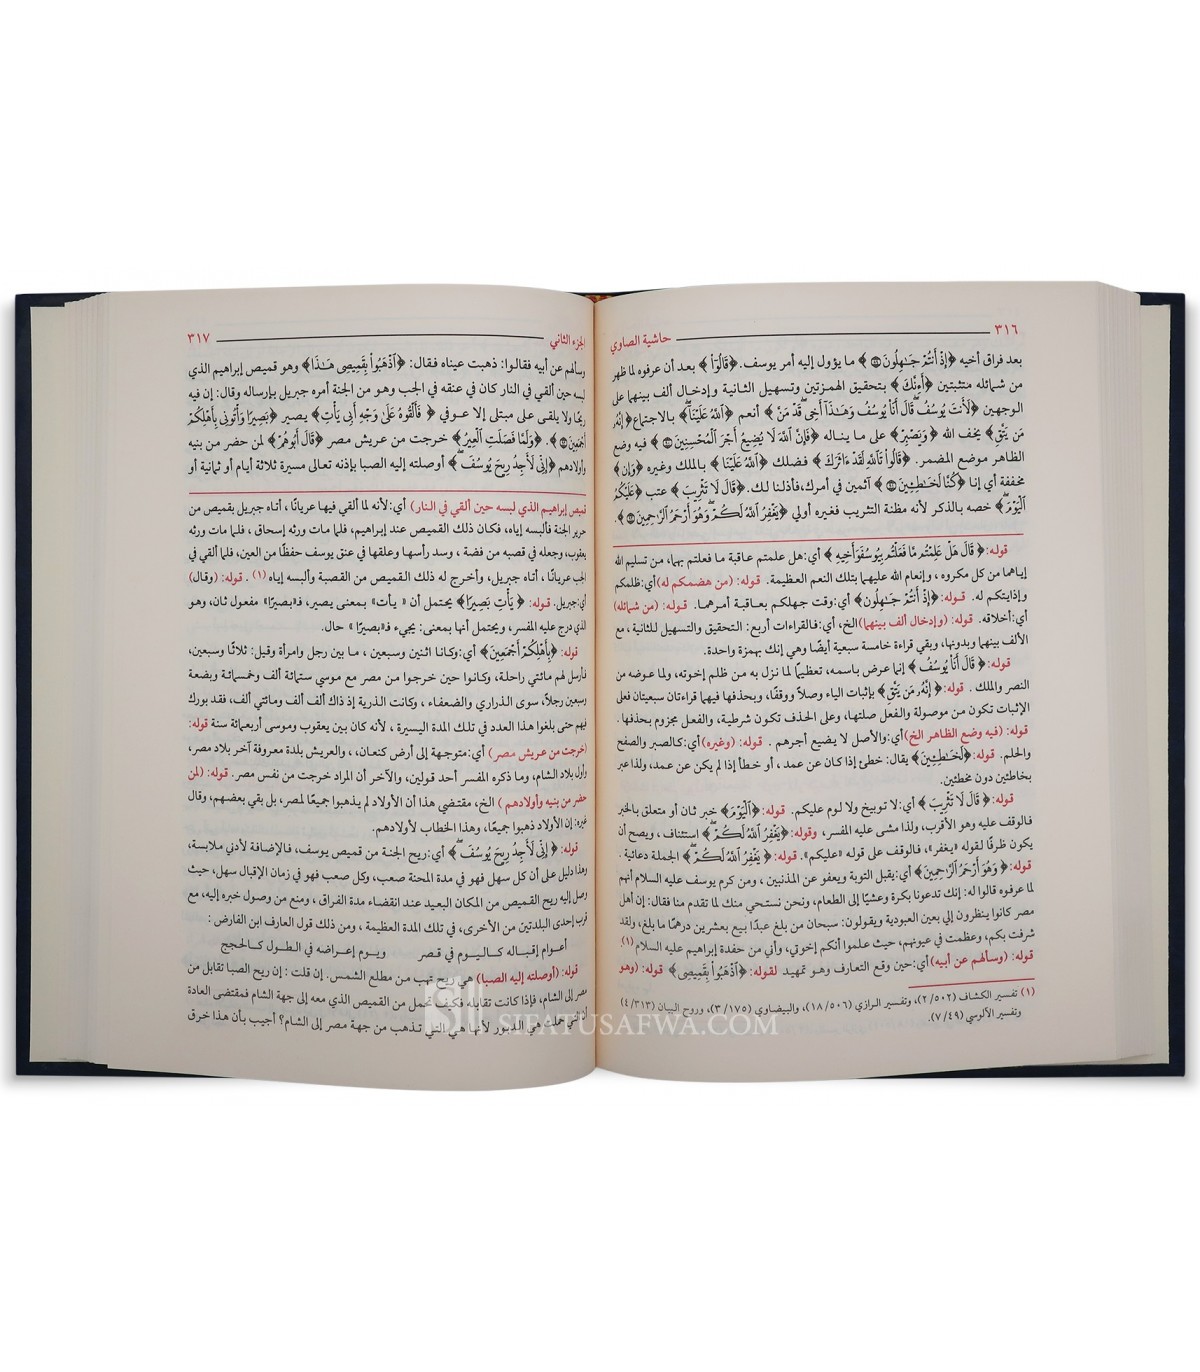 ٣١٦ حاشية الصاوي
بعد فراق أخيه ﴿إِذْ أَنتُمْ جَـٰهِلُونَ﴾ ما يؤول إليه أمر يوسف. ﴿قَالُوٓا۟﴾ بعد أن عرفوه لما ظهر
من شمائله متثبتين ﴿أَءِنَّكَ﴾ بتحقيق الهمزتين وتسهيل الثانية وإدخال ألف بينهما على
الوجهين ﴿لَأَنتَ يُوسُفُ ۖ قَالَ أَنَا۠ يُوسُفُ وَهَـٰذَآ أَخِى ۖ قَدْ مَنَّ﴾ أنعم ﴿ٱللَّهُ عَلَيْنَآ ۖ﴾ بالاجتماع ﴿إِنَّهُۥ
مَن يَتَّقِ﴾ يخف الله ﴿وَيَصْبِرْ﴾ على ما يناله ﴿فَإِنَّ ٱللَّهَ لَا يُضِيعُ أَجْرَ ٱلْمُحْسِنِينَ﴾ فيه وضع
الظاهر موضع المضمر. ﴿قَالُوا۟ تَٱللَّهِ لَقَدْ ءَاثَرَكَ﴾ فضلك ﴿ٱللَّهُ عَلَيْنَا﴾ بالملك وغيره ﴿وَإِن﴾
مخففة أي إنا ﴿كُنَّا لَخَـٰطِـِٔينَ﴾ آثمين في أمرك، فأذلنا لك. ﴿قَالَ لَا تَثْرِيبَ﴾ عتب ﴿عَلَيْكُمُ
ٱلْيَوْمَ ۖ﴾ خصه بالذكر لأنه مظنة التثريب فغيره أولي ﴿يَغْفِرُ ٱللَّهُ لَكُمْ ۖ وَهُوَ أَرْحَمُ ٱلرَّٰحِمِينَ﴾.
قوله: ﴿قَالَ هَلْ عَلِمْتُم مَّا فَعَلْتُم بِيُوسُفَ وَأَخِيهِ﴾ أي: هل علمتم عاقبة ما فعلتم بهما، من تسليم الله
إياهما من كل مكروه، وإنعام الله عليهما بتلك النعم العظيمة. قوله: (من هضمكم له) أي: ظلمكم
وإذايتكم له. قوله: ﴿إِذْ أَنتُمْ جَـٰهِلُونَ﴾ أي: وقت جهلكم بعاقبة أمرهما. قوله: (من شمائله)
أي: أخلاقه. قوله: (وإدخال ألف بينهما) الخ، أي: فالقراءات أربع: التحقيق والتسهيل للثانية، مع
الألف بينهما وبدونها، وبقي قراءة خامسة سبعية أيضًا وهي إنك بهمزة واحدة.
قوله: ﴿قَالَ أَنَا۠ يُوسُفُ﴾ إنما عرض باسمه، تعظيمًا لما نزل به من ظلم إخوته، ولما عوضه من
النصر والملك. قوله: ﴿إِنَّهُۥ مَن يَتَّقِ﴾ بإثبات الياء وصلاً ووقفًا، وبحذفها فيهما قراءتان سبعيتان فعلى
الإثبات تكون من موصولة والفعل صلتها، وعلى الحذف تكون شرطية، والفعل مجزوم بحذفها.
قوله: (فيه وضع الظاهر الخ) أي: والأصل لا يضيع أجرهم. قوله: (وغيره) أي: كالصبر والصفح
والحلم. قوله: ﴿لَخَـٰطِـِٔينَ﴾ يقال: خطئ إذا كان عن عمد، أو خطأ إذا لم يكن عن عمد، ولذا عبر
بخاطئين دون مخطئين.
قوله: ﴿قَالَ لَا تَثْرِيبَ﴾ أي: لا توبيخ ولا لوم عليكم. قوله: ﴿ٱلْيَوْمَ﴾ خبر ثان أو متعلق بالخبر
فالوقف عليه وهو الأقرب، ولذا مشى عليه المفسر، وقوله: ﴿يَغْفِرُ ٱللَّهُ لَكُمْ ۖ﴾ استئناف، ويصح أن
يكون ظرفًا لقوله «يغفر»، فالوقف على قوله «عليكم». قوله: ﴿يَغْفِرُ ٱللَّهُ لَكُمْ ۖ﴾ الجملة دعائية.
قوله: ﴿وَهُوَ أَرْحَمُ ٱلرَّٰحِمِينَ﴾ أي: يقبل التوبة ويعفو عن المذنبين، ومن كرم يوسف عليه السلام أنهم
لما عرفوه قالوا له: إنك تدعونا بكرة وعشيًا إلى الطعام، ونحن نستحي منك لما تقدم منا فقال: إن أهل
مصر كانوا ينظرون إلي بعين العبودية ويقولون: سبحان من بلغ عبدًا بيع بعشرين درهمًا ما بلغ، ولقد
شرفت بكم، وعظمت في عيونهم، حيث علموا أنكم إخوتي، وأني من حفدة إبراهيم عليه السلام (١).
قوله: (وسألهم عن أبيه) أي: حين وقع التعارف وهو تمهيد لقوله: ﴿ٱذْهَبُوا۟ بِقَمِيصِى﴾ قوله: (وهو
(١) تفسير الكشاف (٢/٥٠٢)، وتفسير الرازي (١٨/٥٠٦)، والبيضاوي (٣/١٧٥)، وروح البيان (٤/٣١٣)
وتفسير الآلوسي (٧/٤٩).
الجزء الثاني ٣١٧
وسألهم عن أبيه فقالوا: ذهبت عيناه فقال: ﴿ٱذْهَبُوا۟ بِقَمِيصِى هَـٰذَا﴾ وهو قميص إبراهيم الذي
لبسه حين ألقي في النار كان في عنقه في الجب وهو من الجنة أمره جبريل بإرساله وقال: إن فيه
ريحًا ولا يلقى على مبتلى إلا عوفي ﴿فَأَلْقُوهُ عَلَىٰ وَجْهِ أَبِى يَأْتِ﴾ يصير ﴿بَصِيرًا وَأْتُونِى بِأَهْلِكُمْ
أَجْمَعِينَ﴾. ﴿وَلَمَّا فَصَلَتِ ٱلْعِيرُ﴾ خرجت من عريش مصر ﴿قَالَ أَبُوهُمْ﴾ لمن حضر من بنيه
وأولادهم ﴿إِنِّى لَأَجِدُ رِيحَ يُوسُفَ ۖ﴾ أوصلته إليه الصبا بإذنه تعالى مسيرة ثلاثة أيام أو ثمانية أو
قميص إبراهيم الذي لبسه حين ألقي في النار) أي: لأنه لما ألقي فيها عريانًا، أتاه جبريل بقميص من
حرير الجنة فألبسه إياه، فكان ذلك القميص عند إبراهيم، فلما مات ورثه إسحاق، فلما مات ورثه
يعقوب، وجعله في قصبه من فضة، وسد رأسها وعلقها في عنق يوسف حفظًا من العين، فلما ألقي في
الجب عريانًا، أتاه جبريل، وأخرج له ذلك القميص من القصبة وألبسه إياه (١). قوله: (وقال)
أي: جبريل. قوله: ﴿يَأْتِ بَصِيرًا﴾ يحتمل أن «يأت» بمعنى يصير، فـ«بصيرًا» مفعول ثان، وهو
الذي درج عليه المفسر، ويحتمل أنها بمعنى: يجيء فـ«بصيرًا» حال.
قوله: ﴿بِأَهْلِكُمْ أَجْمَعِينَ﴾ أي: وكانا اثنين وسبعين، ما بين رجل وامرأة وقيل: ثلاثًا وسبعين،
فأرسل لهم مائتي راحلة، وكانوا حين خرجوا من مصر مع موسي ستمائة ألف وخمسمائة وبضعة
وسبعين رجلاً، سوى الذراري والضعفاء، وكانت الذرية إذ ذاك ألف ألف ومائتي ألف، فقد بورك
فيهم حتى بلغوا هذا العدد في تلك المدة اليسيرة، لأنه كان بين يعقوب وموسى أربعمائة سنة قوله:
(خرجت من عريش مصر) أي: متوجهة إلى أرض كنعان، والعريش بلدة معروفة آخر بلاد مصر،
وأول بلاد الشام، وما ذكره المفسر أحد قولين، والآخر أن المراد خرجت من نفس مصر. قوله: (لمن
حضر من بنيه وأولادهم) الخ، مقتضي هذا أن الأولاد لم يذهبوا جميعًا لمصر، بل بقي بعضهم، وقال
غيره: إن الأولاد ذهبوا جميعًا، وهذا الخطاب لأولادهم.
قوله: ﴿إِنِّى لَأَجِدُ رِيحَ يُوسُفَ ۖ﴾ أي: ريح الجنة من قميص يوسف، فالإضافة لأدني ملابسة،
وهذا دليل على أن كل سهل فهو في مدة المحنة صعب، وكل صعب فهو في زمان الإقبال سهل، حيث
وصل إليه ريح القميص من المكان البعيد عند انقضاء مدة الفراق، ومنع من وصول خبره إليه، مع
قرب إحدى البلدتين من الأخرى، في تلك المدة العظيمة، ومن ذلك قول العارف ابن الفارض:
أعوام إقباله كاليوم في قصر ويوم إعراضه في الطول كالحجج
قوله: (أوصلته إليه الصبا) هي ريح تهب من مطلع الشمس. إن قلت: إن ريح الصبا تقابل من
مصر إلى الشام، فإذا كانت تقابله فكيف تحمل من القميص الذي معه إلى جهة الشام فمقتضى العادة
أن التي حملت هي الدبور لأنها هي التي تذهب من جهة مصر إلى الشام؟ أجيب بأن هذا خرق
SIFATUSAFWA.COM